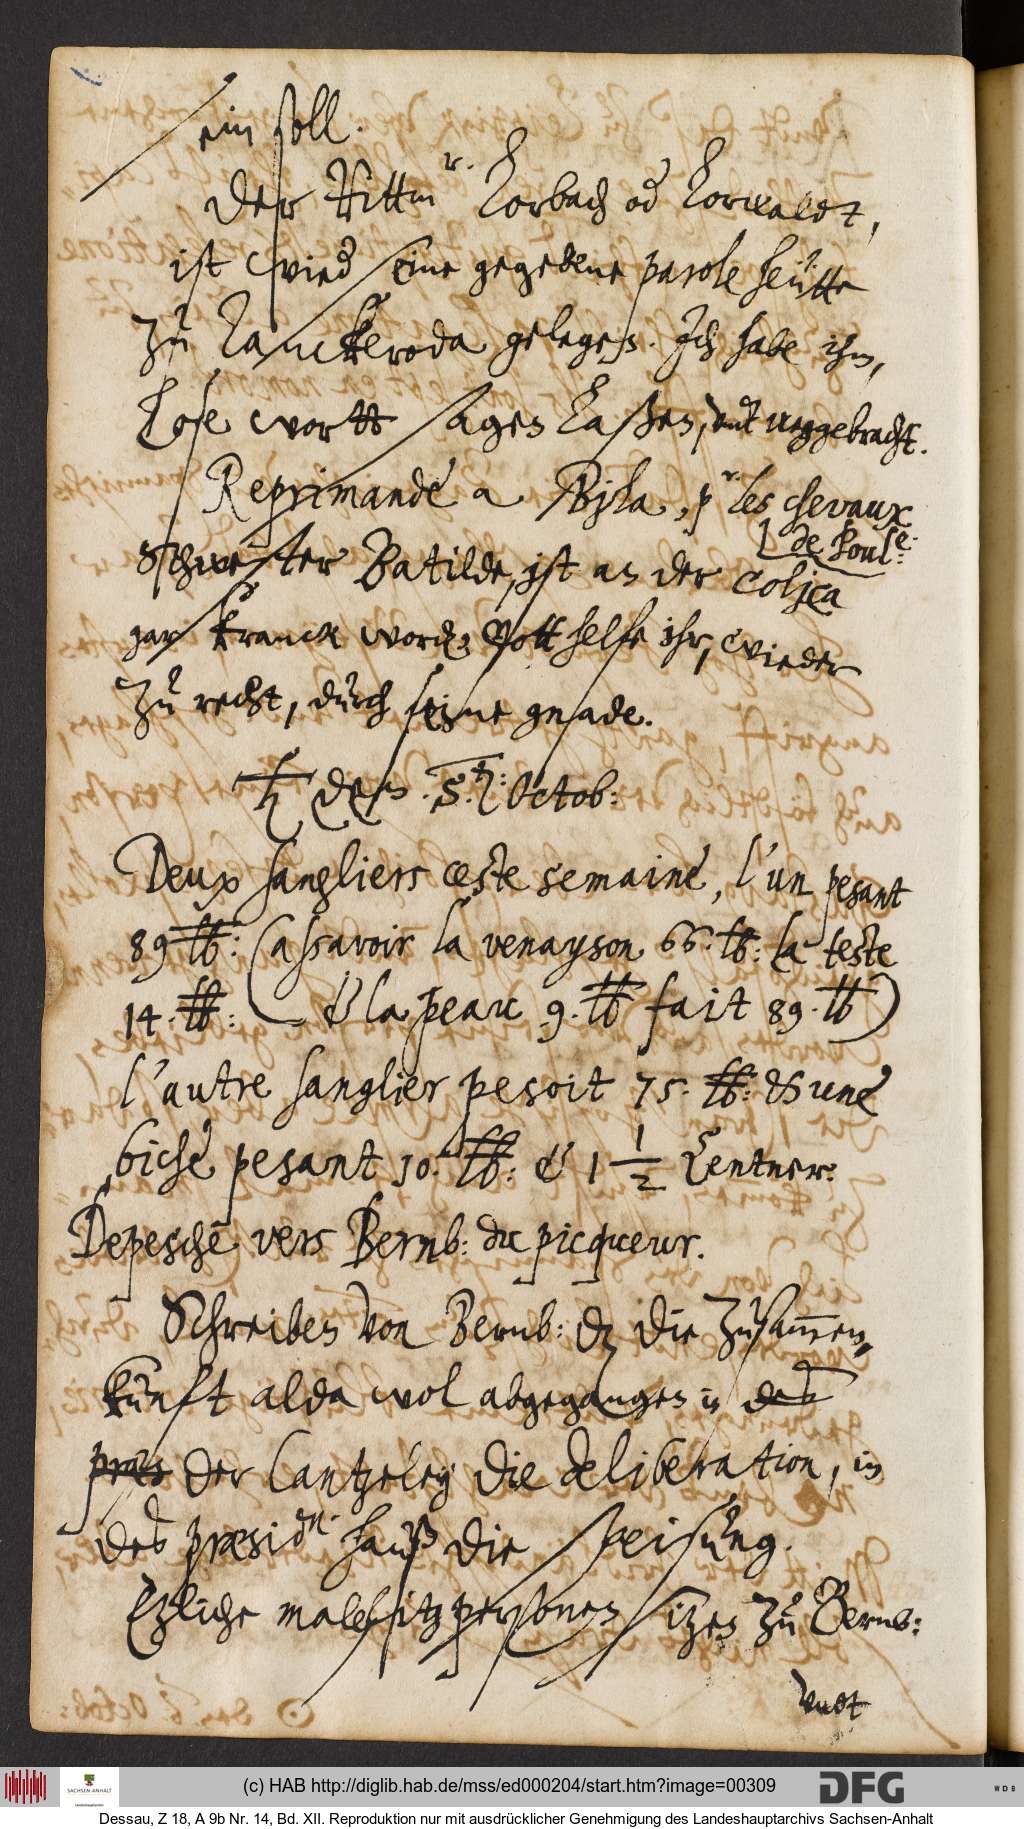 sein soll.
Der Rittmr. Korbach od Korwaldt,
ist wied seine gegebene parole heütte
zu Danckeroda gelegen. Ich habe ihm,
böse wortt sagen laßen, vndt weggebracht.
Reprimande a Bila, pr. les chevaux
de Poule:
Schwester Batilde, ist an der Colica
gar kranck worden, Gott helfe ihr, wieder
zu recht, durch seine gnade.
♄ den 5. Octob:
Deux sangliers ceste semaine, l'un pesant
89 lb: (assavoir la venayson 66. lb: la teste
14. lb: & la peau 9. lb fait 89. lb)
l'autre sanglier pesoit 75. lb: & une
biche pesant 10. lb: & 1 1/2 Centner.
Depesche vers Bernb: du picqueur.
Schreiben von Bernb: dz die zusammen,,
kunft alda wol abgegangen in des
præs der Cantzeley die deliberation, in
des præsiden. hauß die speisung.
Ezliche malefitzpersonen sitzen zu Bernb:
vndt
(c) HAB http://diglib.hab.de/mss/ed000204/start.htm?image=00309
SACHSEN-ANHALT
DFG
WDB
Dessau, Z 18, A 9b Nr. 14, Bd. XII. Reproduktion nur mit ausdrücklicher Genehmigung des Landeshauptarchivs Sachsen-Anhalt